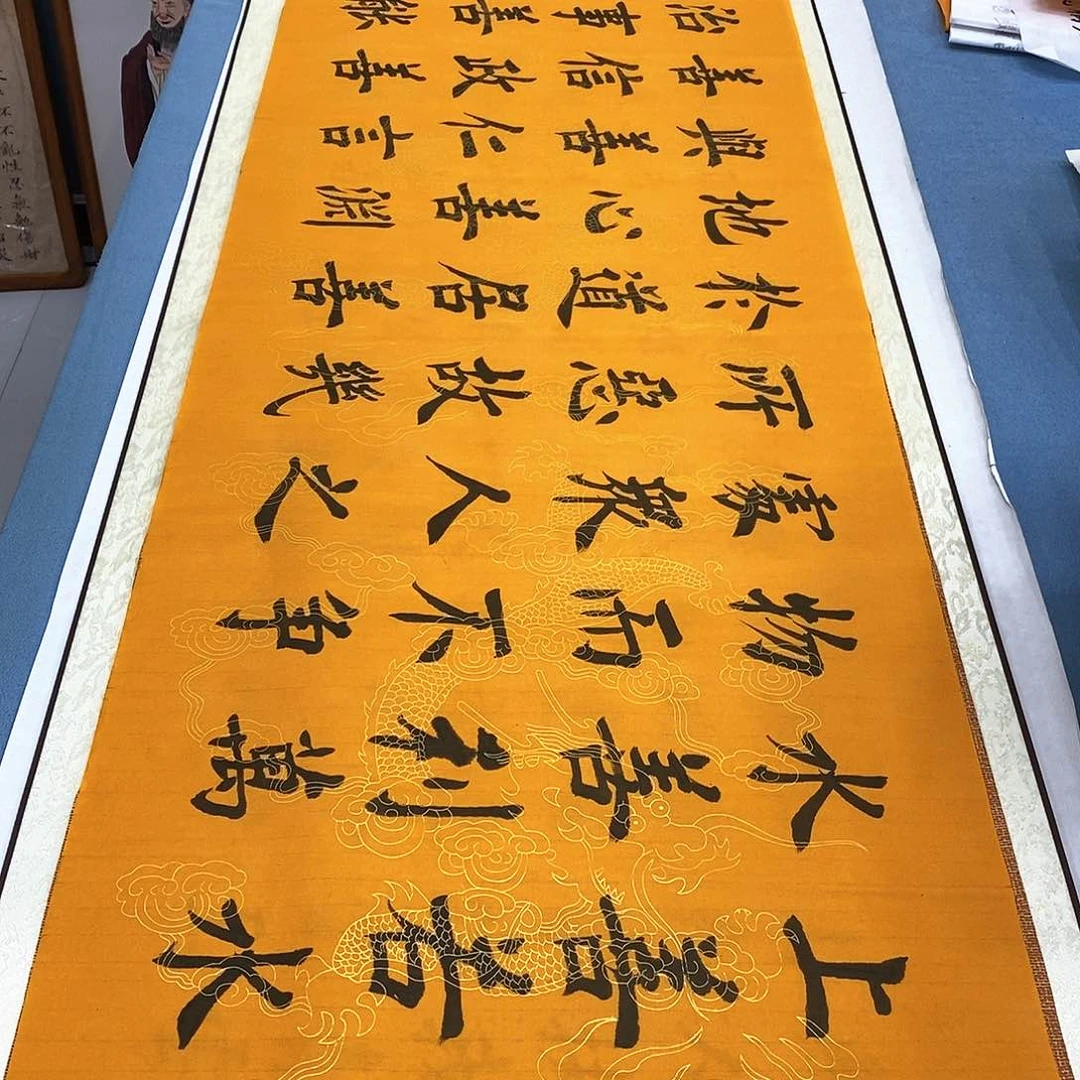 上善若水
水善利萬
物而不爭
處衆人之
所惡故幾
於道居善
地心善淵
與善仁言
善信政善
治事善能